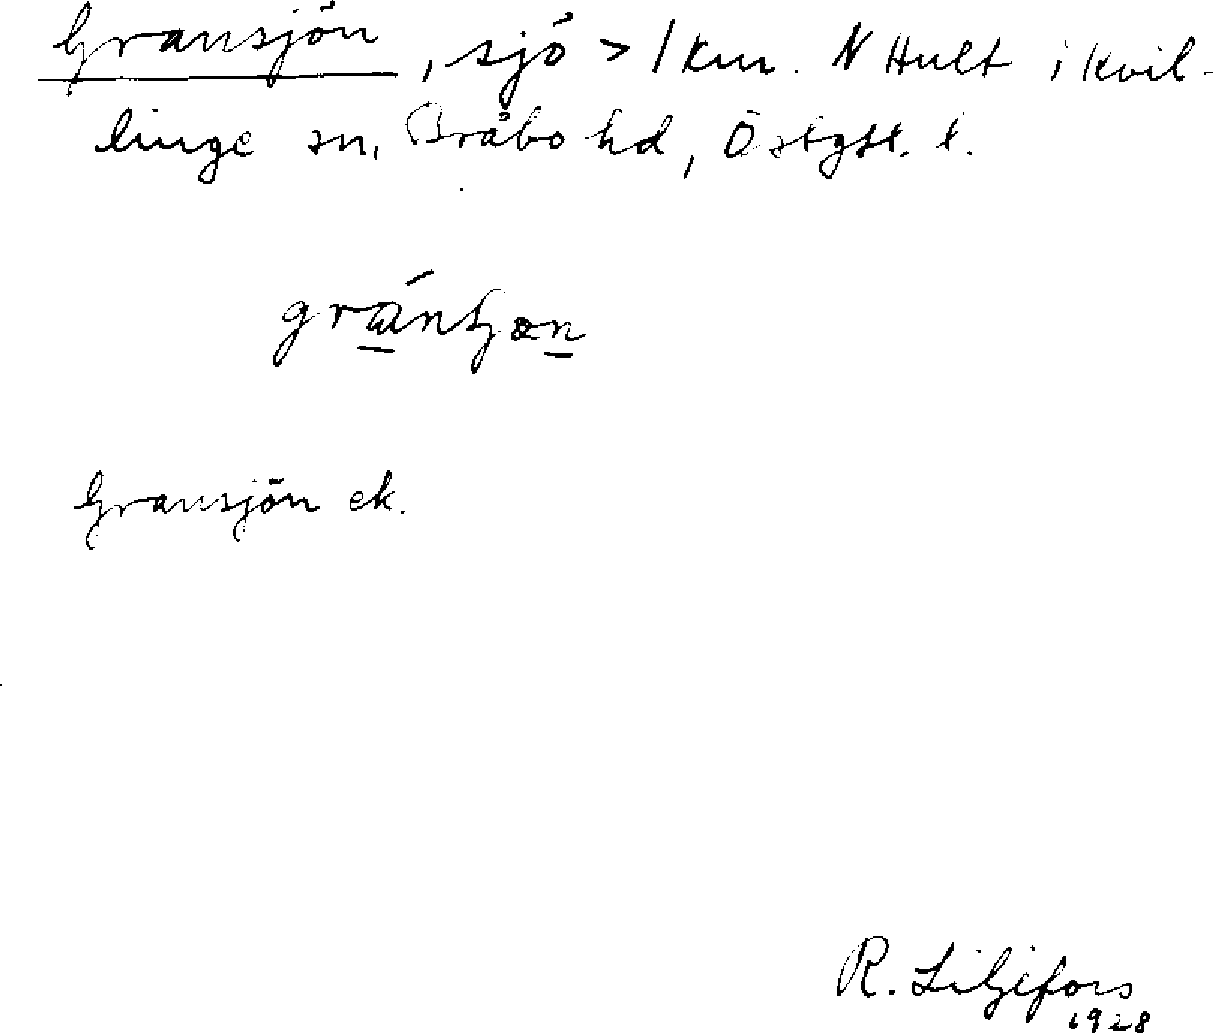 Gransjön, sjö > 1 km. N Hult i Kvil-
linge sn, Bråbo hd, Östgöt. l.
Gransjön ek.
R. Liljefors
1928